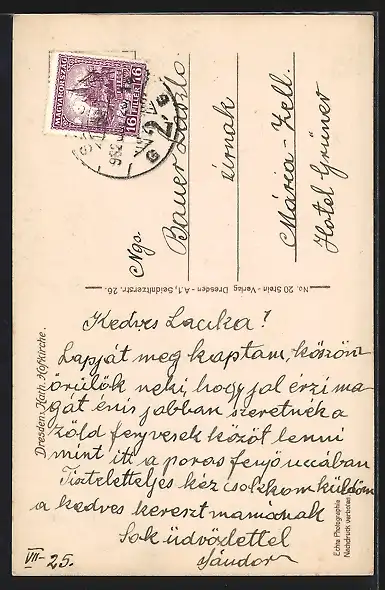 MAGYARORSZÁG
16 FILLÉR 16
Ngs.
Bauer László
úrnak
Mária-Zell.
Hotel Grüner
No. 20 Stein-Verlag Dresden-A.1, Seidnitzerstr. 26.
Dresden: Kath. Hofkirche.
Kedves Lacika!
Lapját meg kaptam, köszön
örülök neki, hogy jol érzi ma-
gát én is jobban szeretnék a
zöld fenyvesek között lenni
mint itt a poros fenyő uccában
Tiszteletteljes kéz csolkom küldöm
a kedves kereszt mamának
Sok üdvözlettel
Sándor
VII-25.
Echte Photographie
Nachdruck verboten